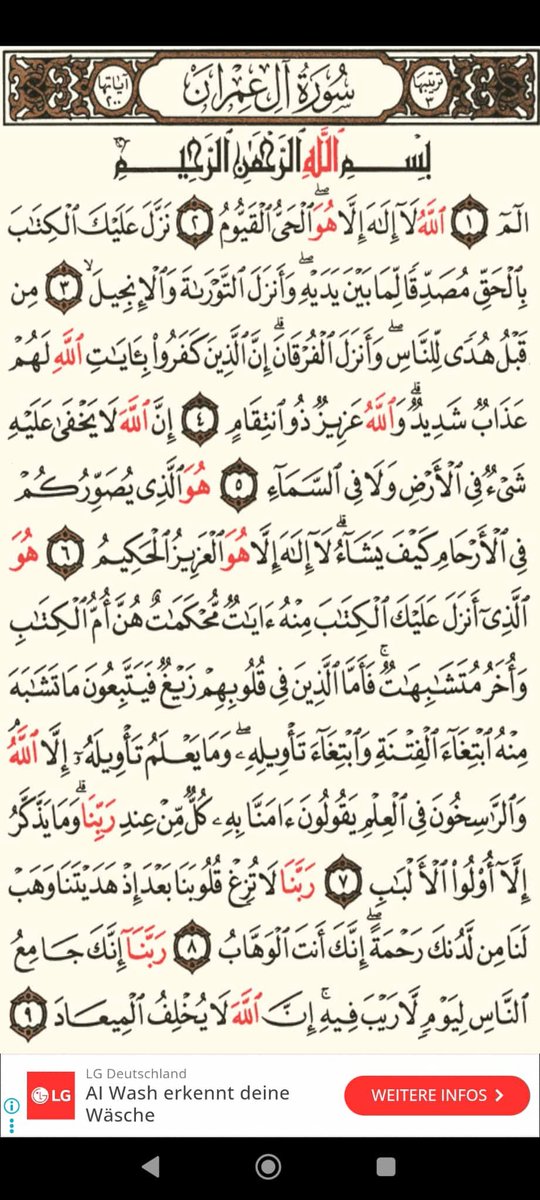 ترتيبها ٣ سُورَةُ آلِ عِمْرَانَ آياتها ٢٠٠
بِسْمِ ٱللَّهِ ٱلرَّحْمَٰنِ ٱلرَّحِيمِ
الٓمٓ ١ ٱللَّهُ لَآ إِلَٰهَ إِلَّا هُوَ ۖ ٱلْحَىُّ ٱلْقَيُّومُ ٢ نَزَّلَ عَلَيْكَ ٱلْكِتَٰبَ
بِٱلْحَقِّ مُصَدِّقًا لِّمَا بَيْنَ يَدَيْهِ ۖ وَأَنزَلَ ٱلتَّوْرَىٰةَ وَٱلْإِنجِيلَ ۙ ٣ مِن
قَبْلُ هُدًى لِّلنَّاسِ ۖ وَأَنزَلَ ٱلْفُرْقَانَ ۗ إِنَّ ٱلَّذِينَ كَفَرُوا۟ بِـَٔايَٰتِ ٱللَّهِ لَهُمْ
عَذَابٌ شَدِيدٌ ۗ وَٱللَّهُ عَزِيزٌ ذُو ٱنتِقَامٍ ٤ إِنَّ ٱللَّهَ لَا يَخْفَىٰ عَلَيْهِ
شَىْءٌ فِى ٱلْأَرْضِ وَلَا فِى ٱلسَّمَآءِ ٥ هُوَ ٱلَّذِى يُصَوِّرُكُمْ
فِى ٱلْأَرْحَامِ كَيْفَ يَشَآءُ ۚ لَآ إِلَٰهَ إِلَّا هُوَ ٱلْعَزِيزُ ٱلْحَكِيمُ ٦ هُوَ
ٱلَّذِىٓ أَنزَلَ عَلَيْكَ ٱلْكِتَٰبَ مِنْهُ ءَايَٰتٌ مُّحْكَمَٰتٌ هُنَّ أُمُّ ٱلْكِتَٰبِ
وَأُخَرُ مُتَشَٰبِهَٰتٌ ۖ فَأَمَّا ٱلَّذِينَ فِى قُلُوبِهِمْ زَيْغٌ فَيَتَّبِعُونَ مَا تَشَٰبَهَ
مِنْهُ ٱبْتِغَآءَ ٱلْفِتْنَةِ وَٱبْتِغَآءَ تَأْوِيلِهِۦ ۖ وَمَا يَعْلَمُ تَأْوِيلَهُۥٓ إِلَّا ٱللَّهُ ۘ
وَٱلرَّٰسِخُونَ فِى ٱلْعِلْمِ يَقُولُونَ ءَامَنَّا بِهِۦ كُلٌّ مِّنْ عِندِ رَبِّنَا ۗ وَمَا يَذَّكَّرُ
إِلَّآ أُو۟لُوا۟ ٱلْأَلْبَٰبِ ٧ رَبَّنَا لَا تُزِغْ قُلُوبَنَا بَعْدَ إِذْ هَدَيْتَنَا وَهَبْ
لَنَا مِن لَّدُنكَ رَحْمَةً ۖ إِنَّكَ أَنتَ ٱلْوَهَّابُ ٨ رَبَّنَآ إِنَّكَ جَامِعُ
ٱلنَّاسِ لِيَوْمٍ لَّا رَيْبَ فِيهِ ۚ إِنَّ ٱللَّهَ لَا يُخْلِفُ ٱلْمِيعَادَ ٩
LG
LG Deutschland
AI Wash erkennt deine
Wäsche
WEITERE INFOS